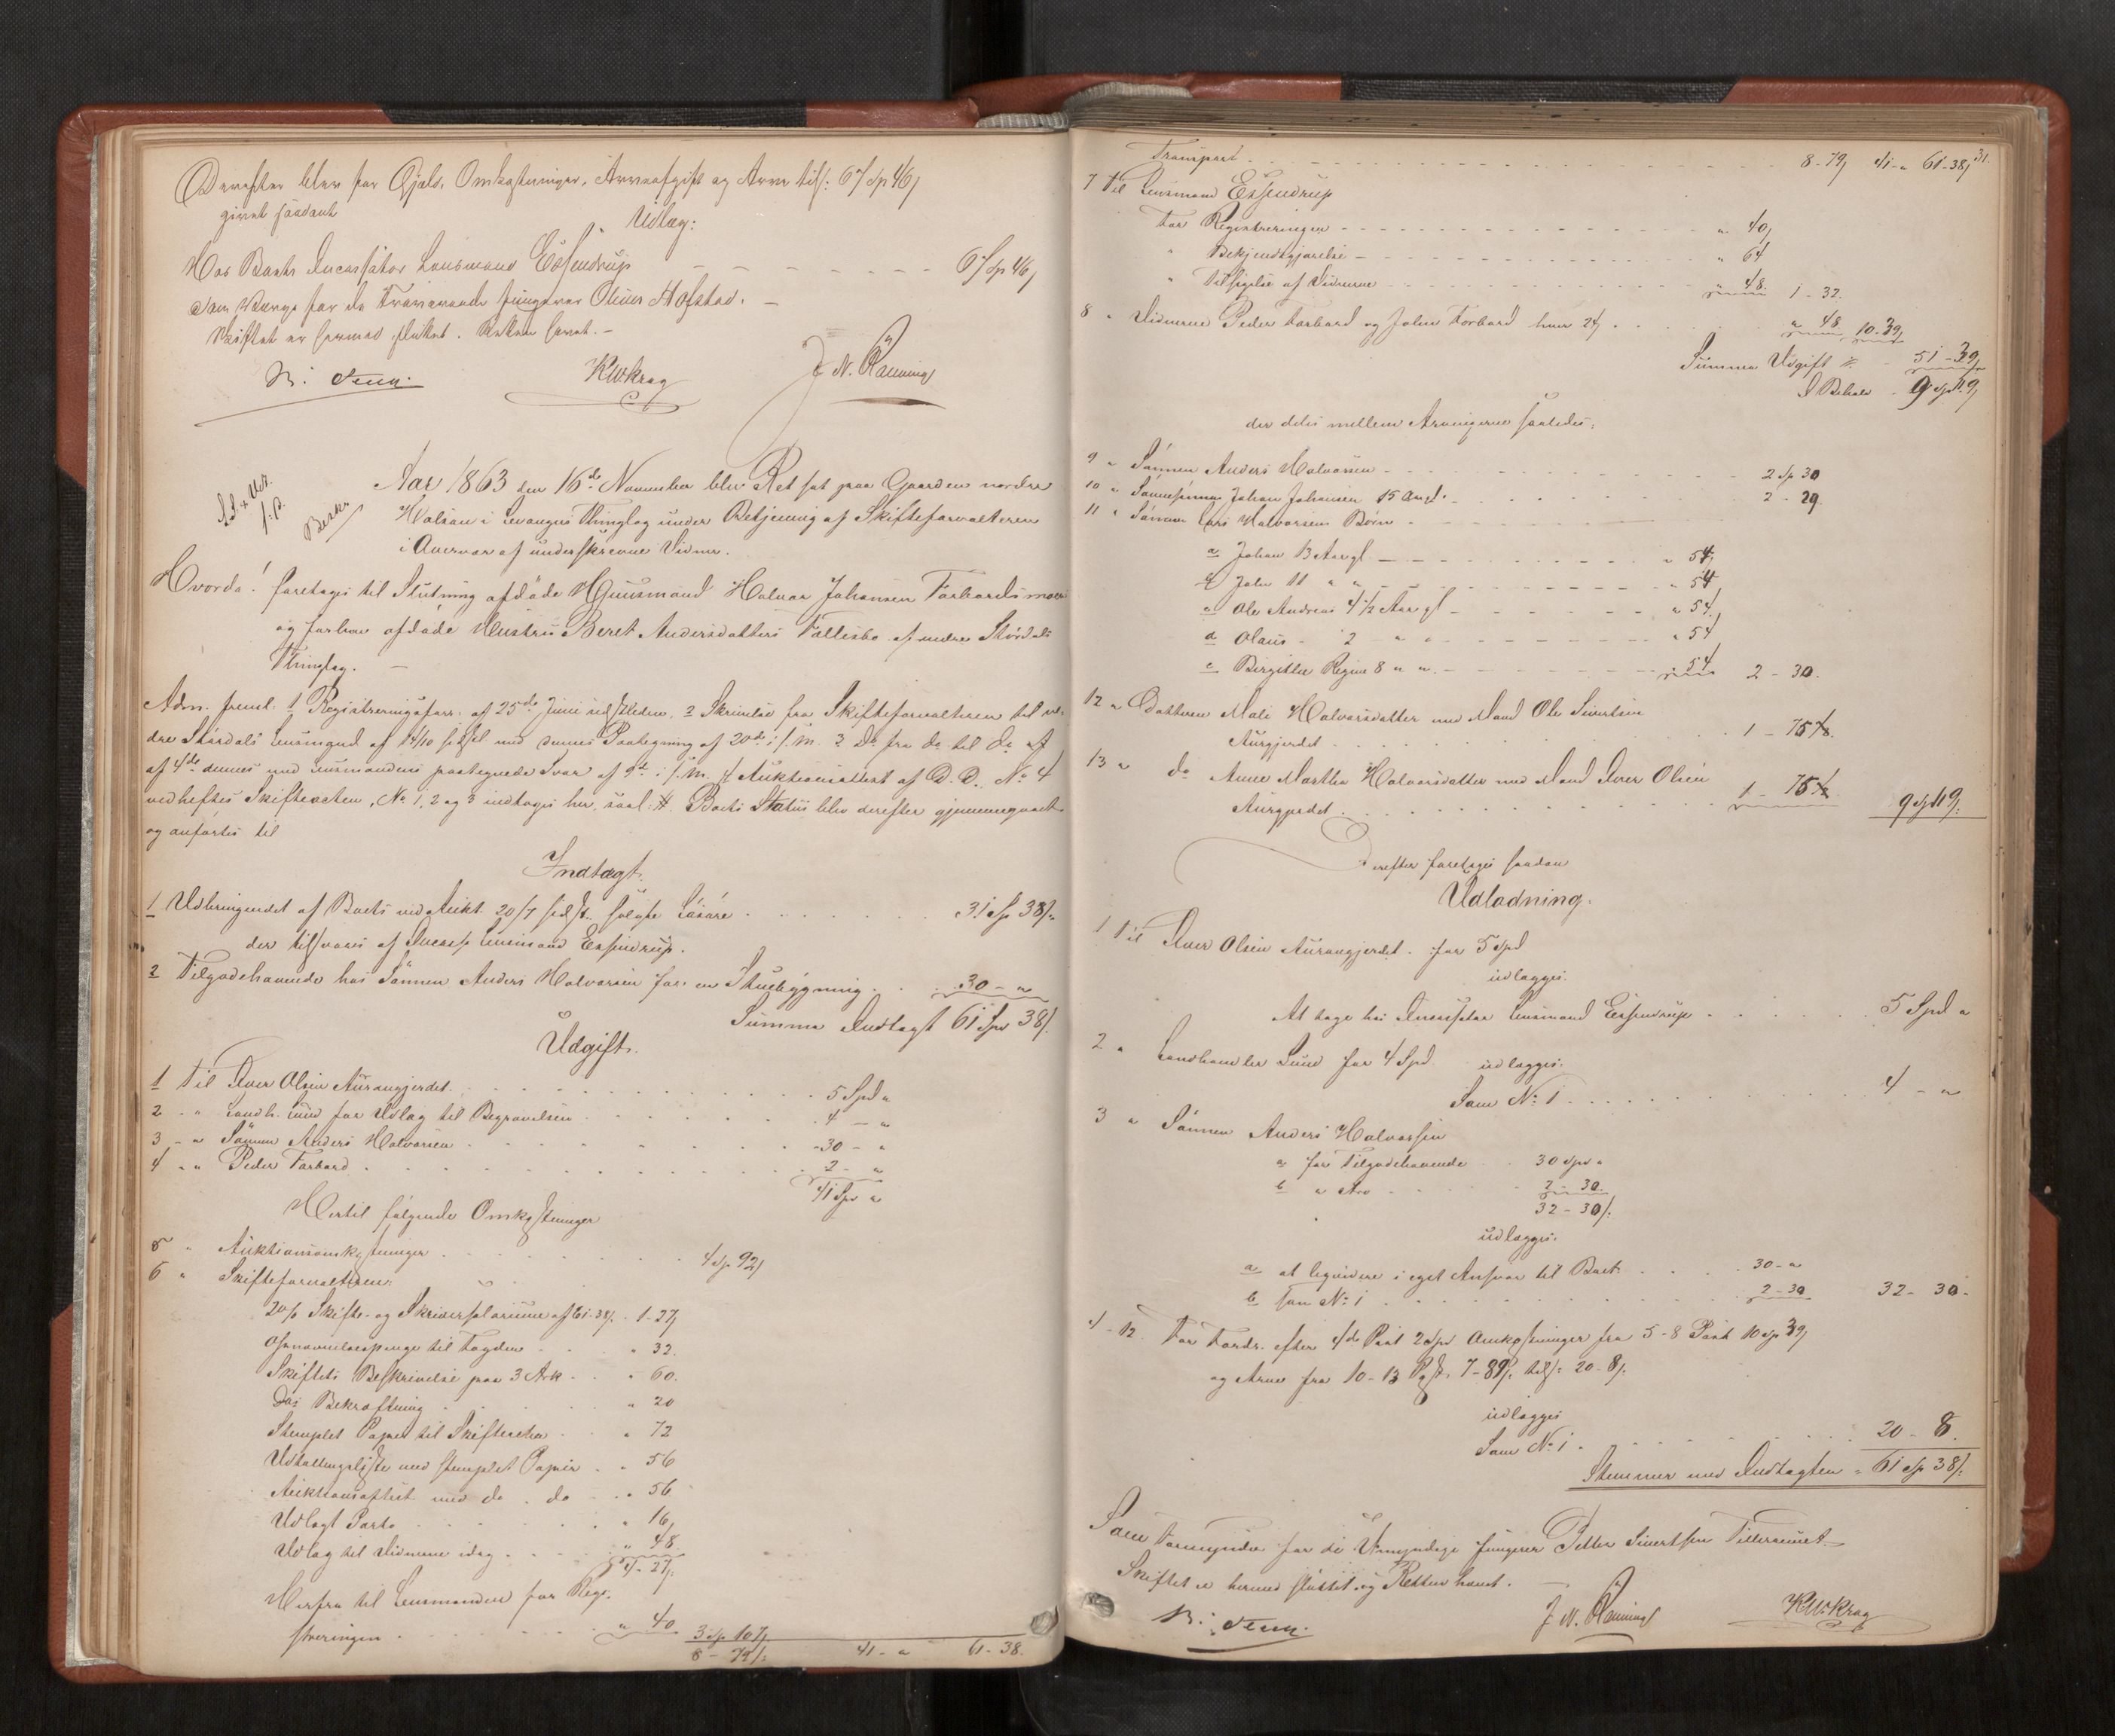 Derefter blev for Gjæld, Omkostninger, Arveafgift og Arv tils: 67 Sp 46 β
givet saadant
Udlæg:
Hos Boets Incassator Lensmand Essendrup - - - 67 Sp 46 β
Som Værge for de fraværende fungerer Olaus Hofstad. -
Skiftet er hermed sluttet. Retten hævet. -
N. Jenn. KWKrog J. N. Rønning
Beskr
Aar 1863 den 16de November blev Ret sat paa Gaarden nordre
Halsan i Levangers Thinglag under Betjening af Skifteforvalteren
i Overvær af underskrevne Vidner.
Hvorda! foretoges til Slutning afdøde Huusmand Halvor Johansen Forbordsmoen
og forhen afdøde Hustru Beret Andersdatters Fællesbo af nedre Størdals
Thinglag. -
Adm. freml. 1 Registreringsforr. af 25de Juni sidstleden, 2 Skrivelse fra Skifteforvalteren til ne-
dre Størdals Lensmand af 14/10 sidstl. med dennes Paategning af 20de i f. M. 3 Do fra do til do af
af 4de dennes med Lensmandens paategnede Svar af 9de i f. M. 4 Auktionsattest af D. D. No 4
vedheftes Skifteacten, No 1, 2 og 3 indtages her, saal: #. Boets Status blev derefter gjennemgaaet
og anførtes til
Indtægt.
1 Udbringendet af Boets ved Aukt. 20/7 sidstl. solgte Løsøre . . . 31 Sp 38 β.
der tilsvares af Incass. Lensmand Essendrup.
2 Tilgodehavende hos Sønnen Anders Halvorsen for en Stuebygning . . . 30 - "
Summa Indtægt 61 Spd 38 β.
Udgift.
1 Til Iver Olsen Aurangjerdet . . . 5 Spd "
2 " Landh. Lund for Udlæg til Begravelsen . . . 4 - "
3 - " Sønnen Anders Halvorsen . . . 30 - "
4 " " Peder Forbord . . . 2 - "
41 Spd "
Hertil følgende Omkostninger
5 " Auktionsomkostninger . . . 4 Sp 92 β
6 " Skifteforvalteren:
2% Skifte- og Skriversalarium af 61-38 β. . 1-27 β
Opnævnelsespenge til Fogden . . " 32.
Skiftets Beskrivelse paa 3 Ark . . " 60.
Dets Bekræftning . . " 20
Stemplet Papir til Skifteacten . . " 72
Udtællingsliste med stemplet Papir . . " 56
Auktionsattest med do . do . . " 56
Udlagt Porto . . " 16 β
Udlæg til Vidnerne idag . . " 48
4 - 27 β.
Herfra til Lensmanden for Regi-
streringen . . . " 40 3 Sp 107 β
8 - 79 β. 41 - " 61 - 38.
31.
Transport . . . 8-79 β 41-" 61-38 β
7 Til Lensmand Essendrup
for Registreringen - - - " 40 β
" Bekjendtgjørelse - - - " 64
" Tilsigelse af Vidnerne - - - " 48. 1 - 32.
8 " Vidnerne Peder Forbord og John Forbord hver 24 β . . . " 48 10-39 β
Summa Udgift 51-39 β
I Behold . 9 Spd 119 β
der deles mellem Arvingerne saaledes:
9 " Sønnen Anders Halvorsen - - - 2 Sp 30
10 " Sønnesønnen Johan Johansen 15 Aargl. - . . . 2 - 29.
11 " Sønnen Lars Halvorsens Børn - . . .
a Johan 13 Aar gl - - - " 54 β
b John 11 " " - - - " 54
c Ole Andreas 4 1/2 Aar gl - - - " 54.
d Olaus - 2 - " " - - - " 54
e Birgitte Regine 8 " " - - - " 54. 2 - 30.
12 " Datteren Mali Halvorsdatter med Mand Ole Sivertsen
Aurgjerdet . . . 1 - 75 1/2.
13 " do Anne Martha Halvorsdatter med Mand Iver Olsen
Aurgjerdet . . . 1 - 75 1/2. 9 Spd 119.
Derefter foretages saadan
Udlodning.
1 Til Iver Olsen Aurangjerdet . for 5 Spd
udlægges.
At tage hos Incassator Lensmand Essendrup . . . 5 Spd "
2 " Landhandler Lund for 4 Spd. udlægges.
Som No 1 . . . 4 - "
3 " Sønnen Anders Halvorsen
a for Tilgodehavende . . 30 Spd "
b " Arv . . . 2 - 30.
32 - 30 β.
udlægges.
a at liqvidere i eget Ansvar til Boet . . . 30 - "
b som No 1 . . . 2 - 30 32 - 30 -
4-12 For Fordr. efter 4de Post 2 Spd Omkostninger fra 5-8 Post 10 Sp 39 β
og Arv fra 10-13 Post. 7-89 β. tils: 20-8 β.
udlægges
Som No 1 . . . 20 - 8.
Stemmer med Indtægten = 61 Sp 38 β.
Som Formynder for de Umyndige fungerer Petter Sivertsen
Skiftet er hermed sluttet og Retten hævet. -
N. Jenn. J. N. Rønning KWKrog